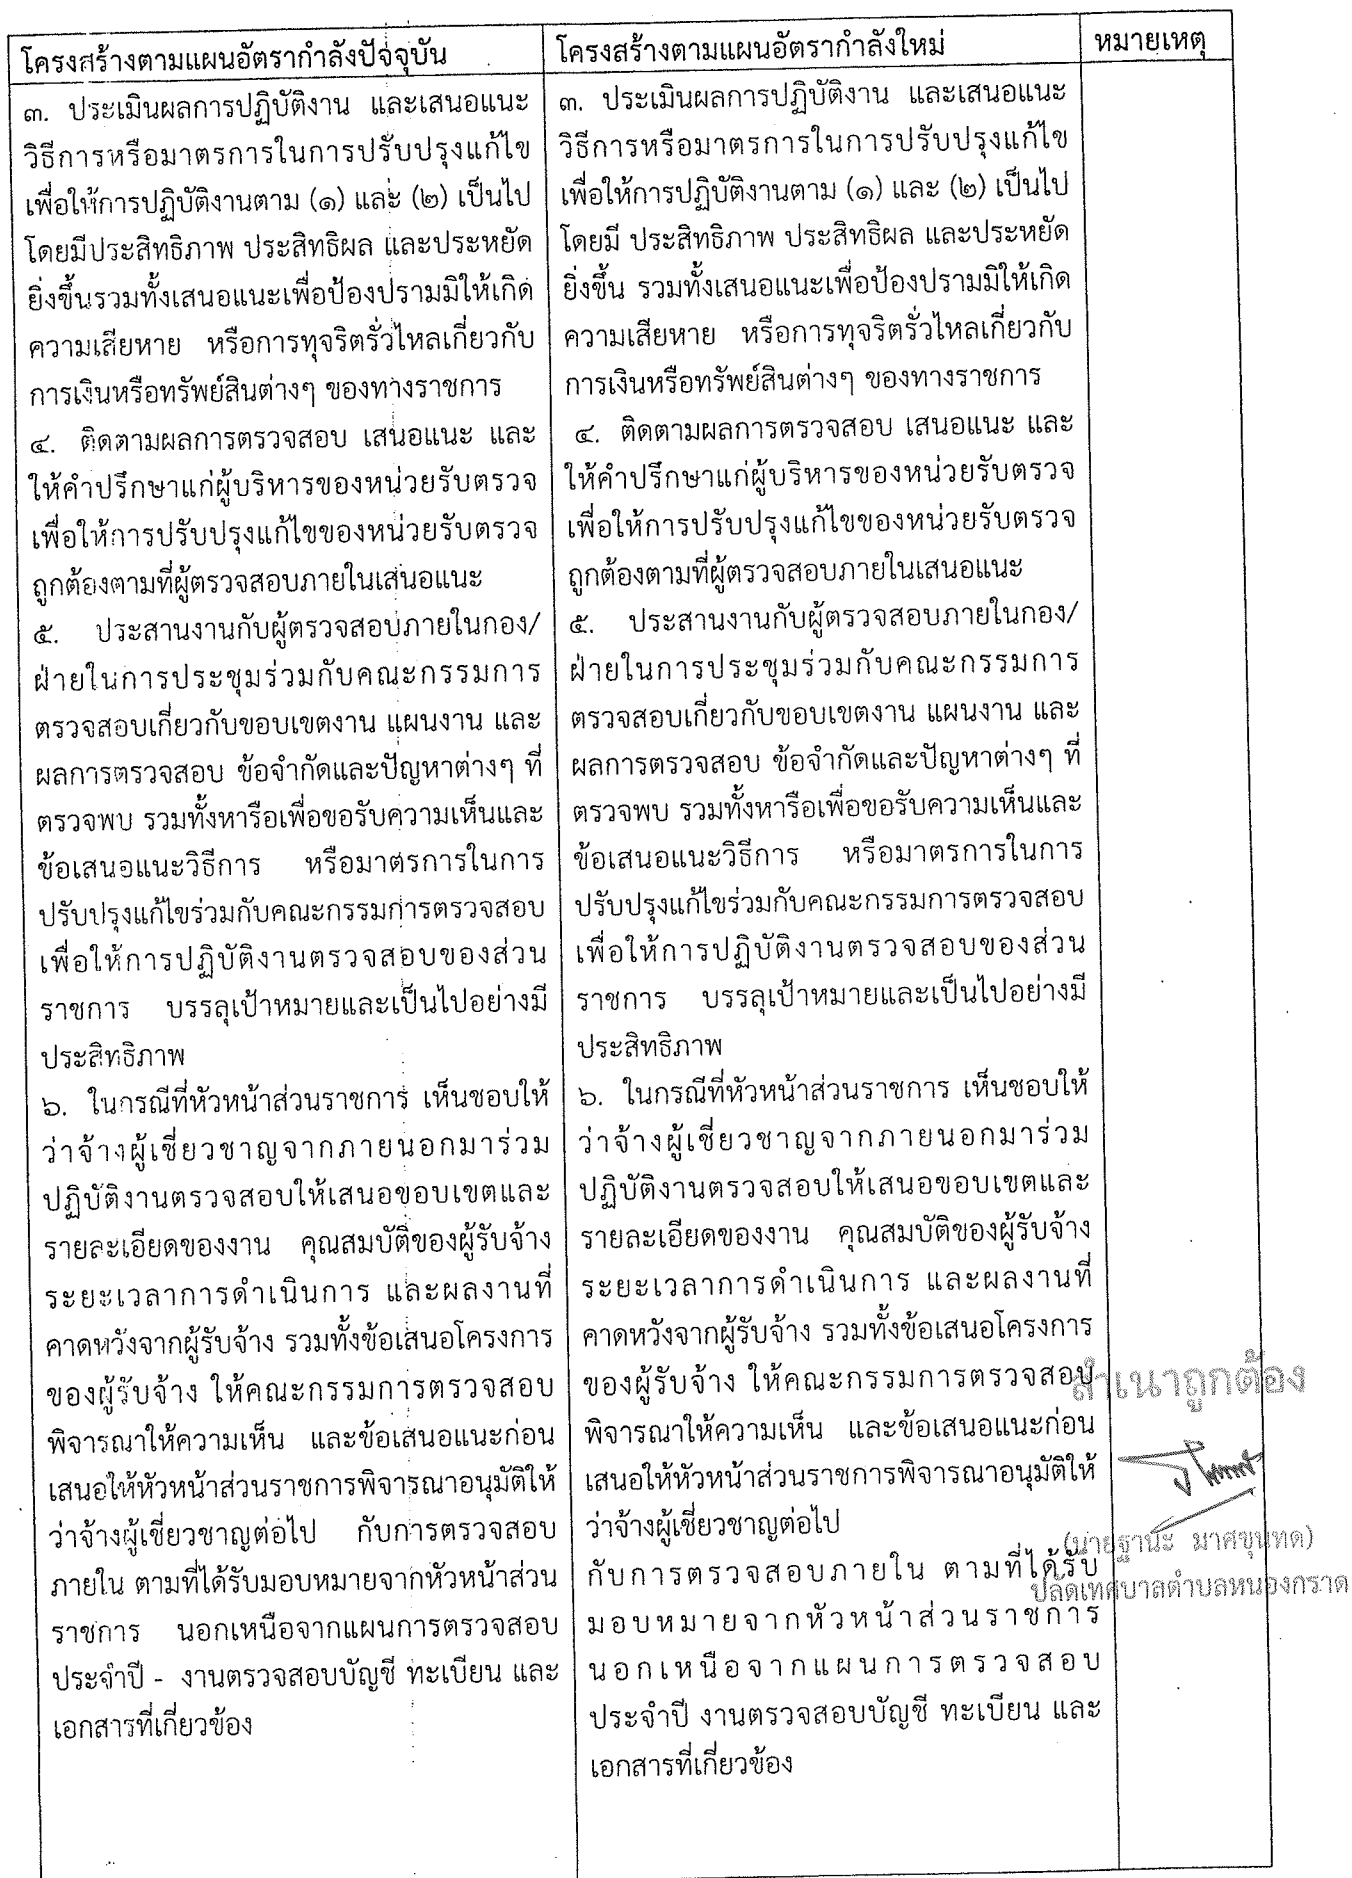 โครงสร้างตามแผนอัตรากำลังปัจจุบัน
๓. ประเมินผลการปฏิบัติงาน และเสนอแนะ
วิธีการหรือมาตรการในการปรับปรุงแก้ไข
เพื่อให้การปฏิบัติงานตาม (๑) และ (๒) เป็นไป
โดยมีประสิทธิภาพ ประสิทธิผล และประหยัด
ยิ่งขึ้นรวมทั้งเสนอแนะเพื่อป้องปรามมิให้เกิด
ความเสียหาย หรือการทุจริตรั่วไหลเกี่ยวกับ
การเงินหรือทรัพย์สินต่างๆ ของทางราชการ
๔. ติดตามผลการตรวจสอบ เสนอแนะ และ
ให้คำปรึกษาแก่ผู้บริหารของหน่วยรับตรวจ
เพื่อให้การปรับปรุงแก้ไขของหน่วยรับตรวจ
ถูกต้องตามที่ผู้ตรวจสอบภายในเสนอแนะ
๕. ประสานงานกับผู้ตรวจสอบภายในกอง/
ฝ่ายในการประชุมร่วมกับคณะกรรมการ
ตรวจสอบเกี่ยวกับขอบเขตงาน แผนงาน และ
ผลการตรวจสอบ ข้อจำกัดและปัญหาต่างๆ ที่
ตรวจพบ รวมทั้งหารือเพื่อขอรับความเห็นและ
ข้อเสนอแนะวิธีการ หรือมาตรการในการ
ปรับปรุงแก้ไขร่วมกับคณะกรรมการตรวจสอบ
เพื่อให้การปฏิบัติงานตรวจสอบของส่วน
ราชการ บรรลุเป้าหมายและเป็นไปอย่างมี
ประสิทธิภาพ
๖. ในกรณีที่หัวหน้าส่วนราชการ เห็นชอบให้
ว่าจ้างผู้เชี่ยวชาญจากภายนอกมาร่วม
ปฏิบัติงานตรวจสอบให้เสนอขอบเขตและ
รายละเอียดของงาน คุณสมบัติของผู้รับจ้าง
ระยะเวลาการดำเนินการ และผลงานที่
คาดหวังจากผู้รับจ้าง รวมทั้งข้อเสนอโครงการ
ของผู้รับจ้าง ให้คณะกรรมการตรวจสอบ
พิจารณาให้ความเห็น และข้อเสนอแนะก่อน
เสนอให้หัวหน้าส่วนราชการพิจารณาอนุมัติให้
ว่าจ้างผู้เชี่ยวชาญต่อไป กับการตรวจสอบ
ภายใน ตามที่ได้รับมอบหมายจากหัวหน้าส่วน
ราชการ นอกเหนือจากแผนการตรวจสอบ
ประจำปี - งานตรวจสอบบัญชี ทะเบียน และ
เอกสารที่เกี่ยวข้อง
โครงสร้างตามแผนอัตรากำลังใหม่
๓. ประเมินผลการปฏิบัติงาน และเสนอแนะ
วิธีการหรือมาตรการในการปรับปรุงแก้ไข
เพื่อให้การปฏิบัติงานตาม (๑) และ (๒) เป็นไป
โดยมี ประสิทธิภาพ ประสิทธิผล และประหยัด
ยิ่งขึ้น รวมทั้งเสนอแนะเพื่อป้องปรามมิให้เกิด
ความเสียหาย หรือการทุจริตรั่วไหลเกี่ยวกับ
การเงินหรือทรัพย์สินต่างๆ ของทางราชการ
๔. ติดตามผลการตรวจสอบ เสนอแนะ และ
ให้คำปรึกษาแก่ผู้บริหารของหน่วยรับตรวจ
เพื่อให้การปรับปรุงแก้ไขของหน่วยรับตรวจ
ถูกต้องตามที่ผู้ตรวจสอบภายในเสนอแนะ
๕. ประสานงานกับผู้ตรวจสอบภายในกอง/
ฝ่ายในการประชุมร่วมกับคณะกรรมการ
ตรวจสอบเกี่ยวกับขอบเขตงาน แผนงาน และ
ผลการตรวจสอบ ข้อจำกัดและปัญหาต่างๆ ที่
ตรวจพบ รวมทั้งหารือเพื่อขอรับความเห็นและ
ข้อเสนอแนะวิธีการ หรือมาตรการในการ
ปรับปรุงแก้ไขร่วมกับคณะกรรมการตรวจสอบ
เพื่อให้การปฏิบัติงานตรวจสอบของส่วน
ราชการ บรรลุเป้าหมายและเป็นไปอย่างมี
ประสิทธิภาพ
๖. ในกรณีที่หัวหน้าส่วนราชการ เห็นชอบให้
ว่าจ้างผู้เชี่ยวชาญจากภายนอกมาร่วม
ปฏิบัติงานตรวจสอบให้เสนอขอบเขตและ
รายละเอียดของงาน คุณสมบัติของผู้รับจ้าง
ระยะเวลาการดำเนินการ และผลงานที่
คาดหวังจากผู้รับจ้าง รวมทั้งข้อเสนอโครงการ
ของผู้รับจ้าง ให้คณะกรรมการตรวจสอบ
พิจารณาให้ความเห็น และข้อเสนอแนะก่อน
เสนอให้หัวหน้าส่วนราชการพิจารณาอนุมัติให้
ว่าจ้างผู้เชี่ยวชาญต่อไป
กับการตรวจสอบภายใน ตามที่ได้รับ
มอบหมายจากหัวหน้าส่วนราชการ
นอกเหนือจากแผนการตรวจสอบ
ประจำปี งานตรวจสอบบัญชี ทะเบียน และ
เอกสารที่เกี่ยวข้อง
หมายเหตุ
สำเนาถูกต้อง
(นายฐานะ มาศขุนทด)
ปลัดเทศบาลตำบลหนองกราด